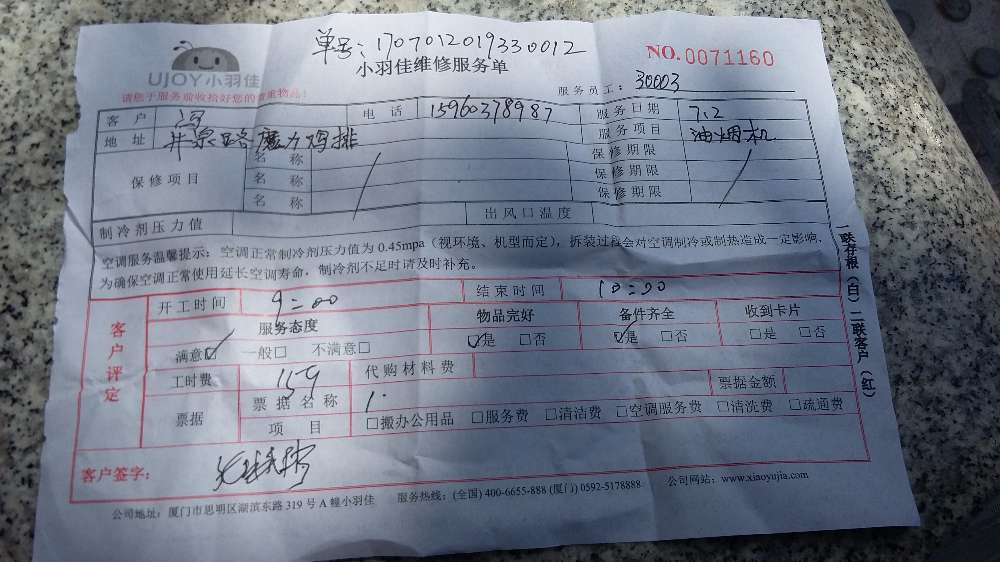 单号:1707012019330012
UJOY小羽佳
小羽佳维修服务单
NO.0071160
请您于服务前收拾好您的贵重物品!
服务员工:30003
客户 冯 电话 15960378987 服务日期 7.2
地址 井泉路魔力鸡排 服务项目 油烟机
保修项目 名称 保修期限
名称 保修期限
名称 保修期限
制冷剂压力值 出风口温度
空调服务温馨提示:空调正常制冷剂压力值为0.45mpa(视环境、机型而定),拆装过程会对空调制冷或制热造成一定影响,
为确保空调正常使用延长空调寿命,制冷剂不足时请及时补充。
客户评定
开工时间 9:00 结束时间 10:00
服务态度 物品完好 备件齐全 收到卡片
满意☑ 一般□ 不满意□ ☑是 □否 ☑是 □否 □是 □否
工时费 159 代购材料费
票据 票据名称 票据金额
项目 □搬办公用品 □服务费 □清洁费 □空调服务费 □清洗费 □疏通费
客户签字:
公司地址:厦门市思明区湖滨东路319号A幢小羽佳 服务热线:(全国)400-6655-888(厦门)0592-5178888 公司网站:www.xiaoyujia.com
一联存根(白)二联客户(红)